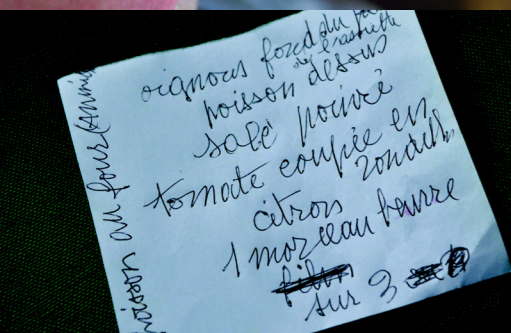 oignons fond du
de l'assiette
poisson dessus
salé poivré
tomate coupée en
rondelle
citron
1 morceau beurre
sur 3
poisson au four